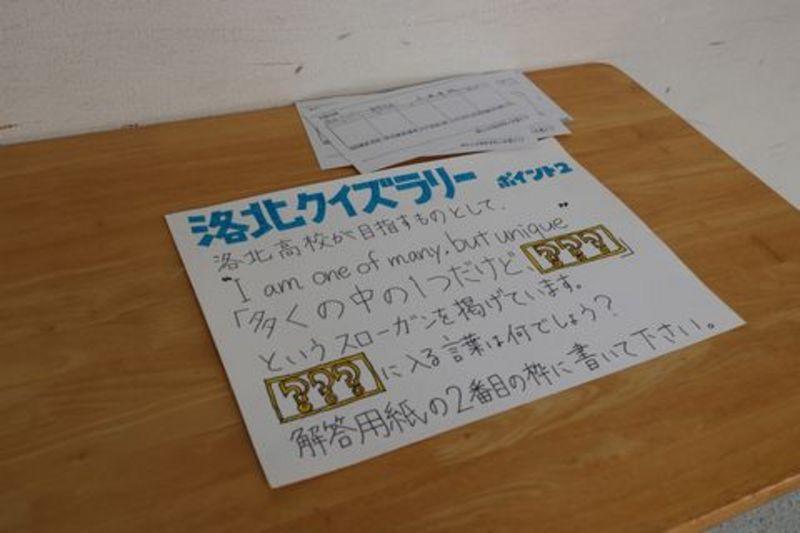 洛北クイズラリー ポイント2
洛北高校が目指すものとして、
"I am one of many, but unique"
「多くの中の1つだけど、???」
というスローガンを掲げています。
???に入る言葉は何でしょう?
解答用紙の2番目の枠に書いて下さい。